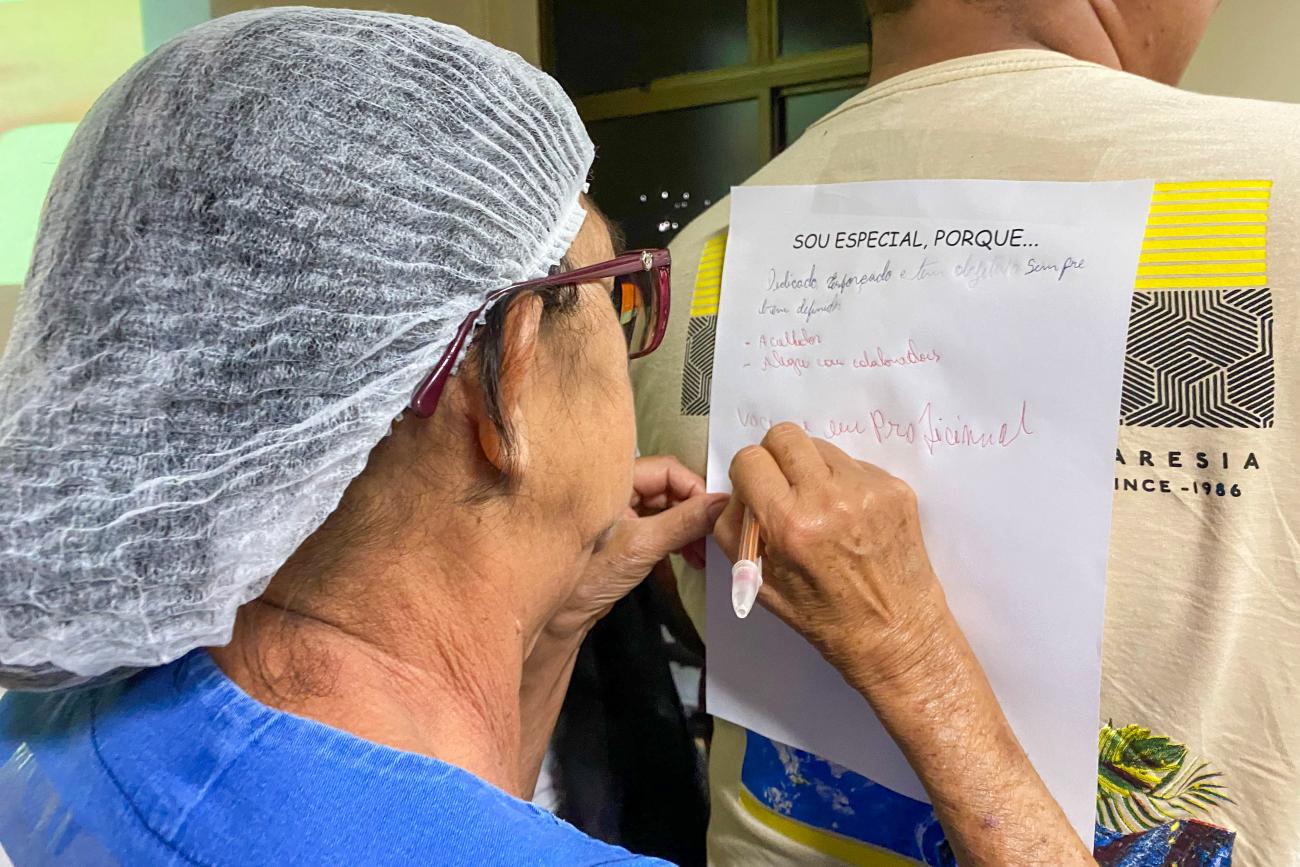 SOU ESPECIAL, PORQUE...
Dedicado esforçado e tem objetivo sempre
bem definido
- Acolhedor
- Alegre com colaboradores
Você e um Proficinnal
ARESIA
INCE -1986